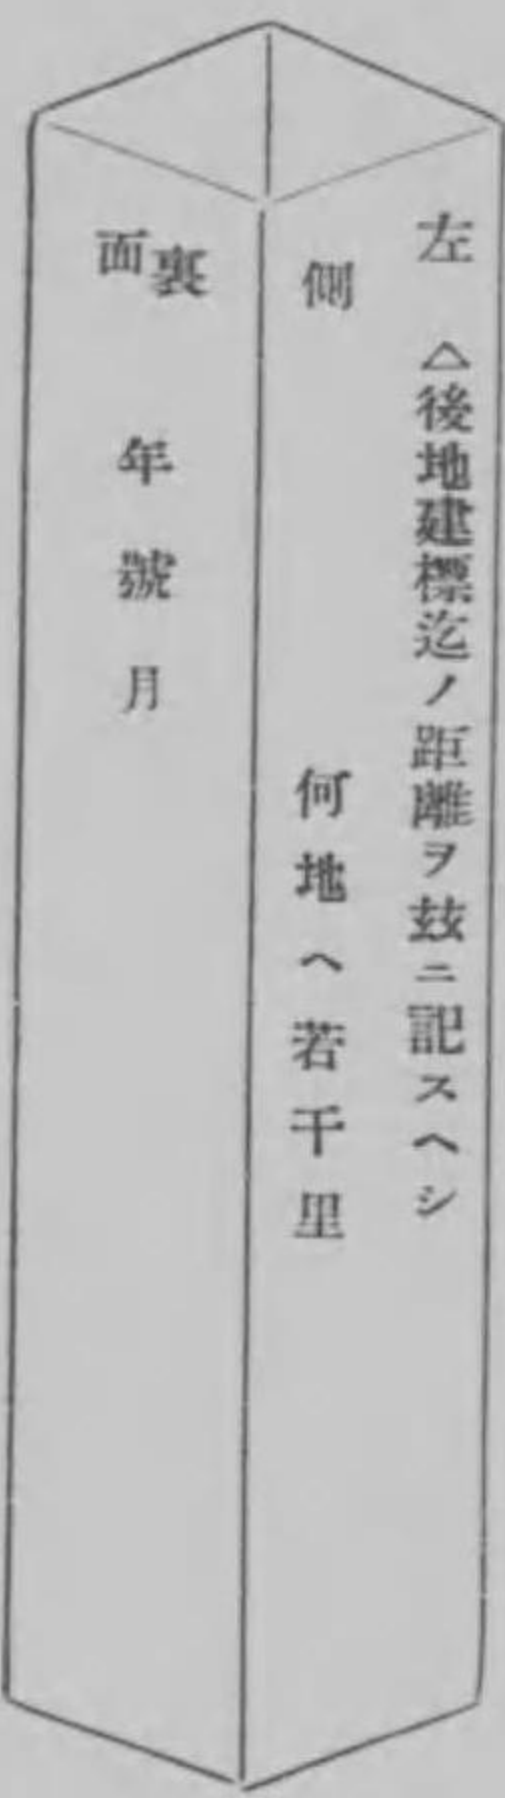 左側
△後地建標迄ノ距離ヲ玆ニ記スヘシ
何地ヘ若干里
裏面
年號月